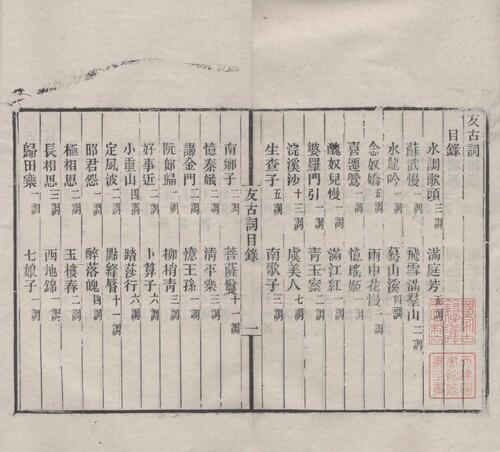 友古詞
目錄
水調歌頭三調 滿庭芳五調
蘇武慢一調 飛雪滿羣山二調
水龍吟一調 驀山溪四調
念奴嬌五調 雨中花慢一調
喜遷鶯一調 憶瑤姬一調
醜奴兒慢一調 滿江紅一調
婆羅門引一調 青玉案二調
浣溪沙十三調 虞美人七調
生查子五調 南歌子三調
南鄉子二調 菩薩鬘十一調
憶秦娥二調 清平樂三調
謁金門二調 憶王孫一調
阮郎歸一調 柳梢青三調
好事近二調 卜算子六調
小重山四調 踏莎行六調
定風波二調 點絳脣十一調
昭君怨一調 醉落魄四調
極相思二調 玉樓春二調
長相思三調 西地錦一調
歸田樂一調 七娘子一調
友古詞目錄 一